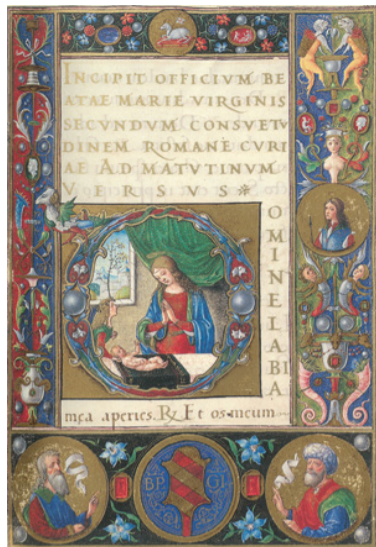 INCIPIT OFFICIVM BE
ATAE MARIE VIRGINIS
SECVNDVM CONSVETV
DINEM ROMANE CVRI
AE AD MATVTINVM
VERSVS
DOMINE LABIA
mea aperies. ℟ Et os meum
BP GI